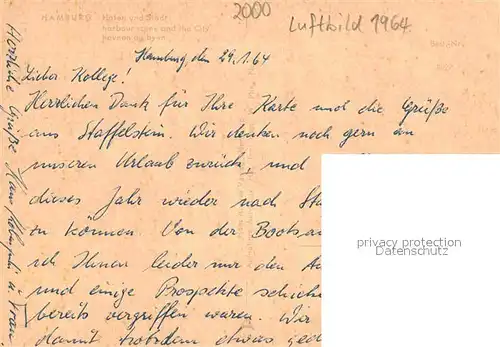 HAMBURG Hafen und Stadt
harbour view and the City
havnen og byen
2000
Luftbild 1964
Hamburg, den 29.1.64
Lieber Kollege!
Herrlichen Dank für Ihre Karte und die Grüße
aus Staffelstein. Wir denken noch gern an
unseren Urlaub zurück, und
dieses Jahr wieder nach Sta
zu können. Von der Bootsau
ich Ihnen leider nur den
und einige Prospekte schick
bereits vergriffen waren. Wir
damit trotzdem etwas ged
Herzliche Grüße Hans u. Frau
privacy protection
Ansichtskarten-Center.de